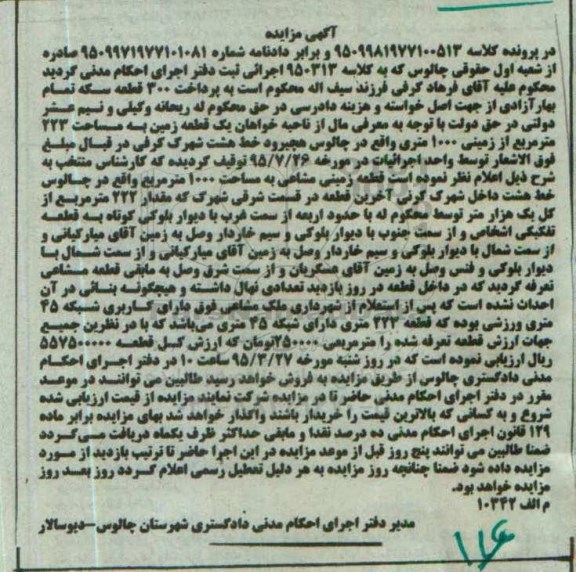 آگهی مزایده
در پرونده کلاسه ۹۵۰۹۹۸۱۹۷۷۱۰۰۵۱۳ و برابر دادنامه شماره ۹۵۰۹۹۷۱۹۷۷۱۰۱۰۸۱ صادره
از شعبه اول حقوقی چالوس که به کلاسه ۹۵۰۳۱۳ اجرائی ثبت دفتر اجرای احکام مدنی گردید
محکوم علیه آقای فرهاد کرفی فرزند سیف اله محکوم است به پرداخت ۳۰۰ قطعه سکه تمام
بهار آزادی از جهت اصل خواسته و هزینه دادرسی در حق محکوم له ریحانه وکیلی و نیم عشر
دولتی در حق دولت با توجه به معرفی مال از ناحیه خواهان یک قطعه زمین به مساحت ۲۲۳
مترمربع از زمینی ۱۰۰۰ متری واقع در چالوس هچیرود خط هشت شهرک کرفی در قبال مبلغ
فوق الاشعار توسط واحد اجرائیات در مورخه ۹۵/۷/۲۶ توقیف گردیده که کارشناس منتخب به
شرح ذیل اعلام نظر نموده است قطعه زمینی مشاعی به مساحت ۱۰۰۰ مترمربع واقع در چالوس
خط هشت داخل شهرک کرفی آخرین قطعه در قسمت شرقی شهرک که مقدار ۲۲۲ مترمربع از
کل یک هزار متر توسط محکوم له با حدود اربعه از سمت غرب با دیوار بلوکی کوتاه به قطعه
تفکیکی اشخاص و از سمت جنوب با دیوار بلوکی و سیم خاردار وصل به زمین آقای میارکیانی و
از سمت شمال با دیوار بلوکی و سیم خاردار وصل به زمین آقای میارکیانی و از سمت شمال با
دیوار بلوکی و فنس وصل به زمین آقای عسگریان و از سمت شرق وصل به مابقی قطعه مشاعی
تعرفه گردید که در داخل قطعه در روز بازدید تعدادی نهال داشته و هیچگونه بنائی در آن
احداث نشده است که پس از استعلام از شهرداری ملک مشاعی فوق دارای کاربری شبکه ۴۵
متری ورزشی بوده که قطعه ۲۲۳ متری دارای شبکه ۴۵ متری می‌باشد که با در نظرین جمیع
جهات ارزش قطعه تعرفه شده را مترمربعی ۲۵۰۰۰۰تومان که ارزش کل قطعه ۵۵۷۵۰۰۰۰۰
ریال ارزیابی نموده است که در روز شنبه مورخه ۹۵/۳/۲۷ ساعت ۱۰ در دفتر اجرای احکام
مدنی دادگستری چالوس از طریق مزایده به فروش خواهد رسید طالبین می توانند در موعد
مقرر در دفتر اجرای احکام مدنی حاضر تا در مزایده شرکت نمایند مزایده از قیمت ارزیابی شده
شروع و به کسانی که بالاترین قیمت را خریدار باشند واگذار خواهد شد بهای مزایده برابر ماده
۱۲۹ قانون اجرای احکام مدنی ده درصد نقدا و مابقی حداکثر ظرف یکماه دریافت می‌گردد
ضمنا طالبین می توانند پنج روز قبل از موعد مزایده در این اجرا حاضر تا ترتیب بازدید از مورد
مزایده داده شود ضمنا چنانچه روز مزایده به هر دلیل تعطیل رسمی اعلام گردد روز بعد روز
مزایده خواهد بود.
م الف ۱۰۳۴۲
مدیر دفتر اجرای احکام مدنی دادگستری شهرستان چالوس-دیوسالار
۱۱۶